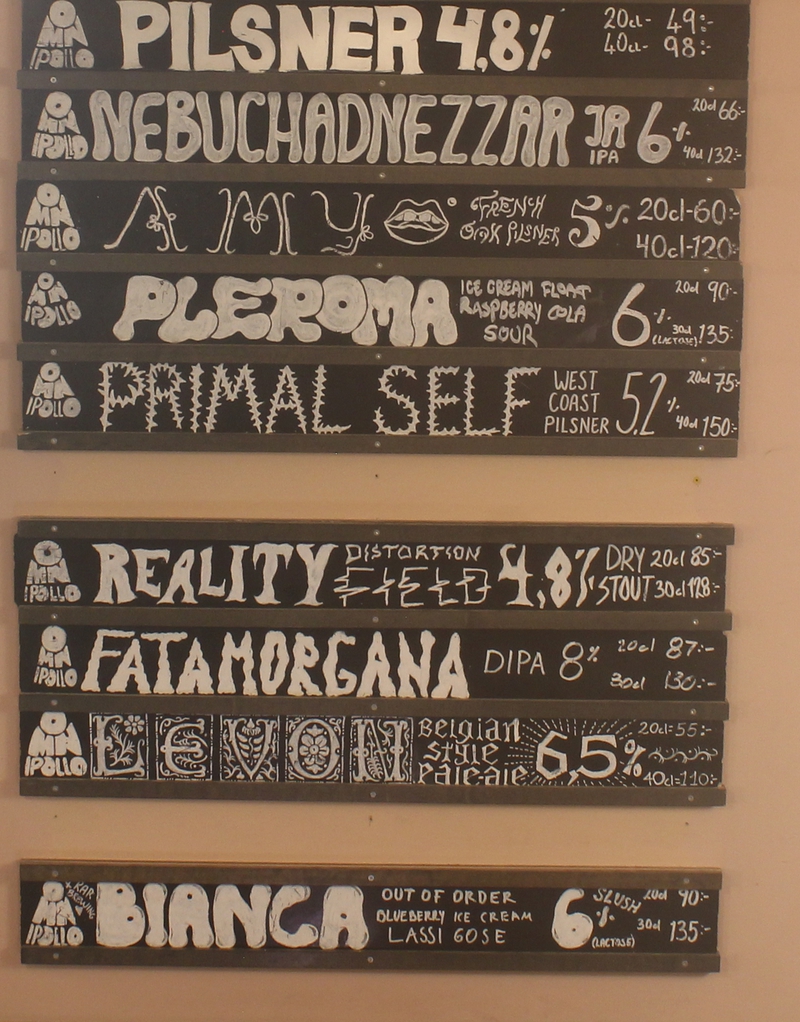 OMNIPOLLO PILSNER 4,8% 20cl- 49:-
40cl- 98:-
OMNIPOLLO NEBUCHADNEZZAR JR IPA 6% 20cl 66:-
40cl 132:-
OMNIPOLLO AMY FRENCH OAK PILSNER 5% 20cl-60:-
40cl-120:-
OMNIPOLLO PLEROMA ICE CREAM FLOAT
RASPBERRY COLA
SOUR 6% (LACTOSE) 20cl 90:-
30cl 135:-
OMNIPOLLO PRIMAL SELF WEST
COAST
PILSNER 5,2% 20cl 75:-
40cl 150:-
OMNIPOLLO REALITY DISTORTION
FIELD 4,8% DRY STOUT 20cl 85:-
30cl 128:-
OMNIPOLLO FATAMORGANA DIPA 8% 20cl 87:-
30cl 130:-
OMNIPOLLO LEVON Belgian
style
pale ale 6,5% 20cl=55:-
40cl=110:-
OMNIPOLLO BIANCA OUT OF ORDER
BLUEBERRY ICE CREAM
LASSI GOSE 6% (LACTOSE) SLUSH 20cl 90:-
30cl 135:-